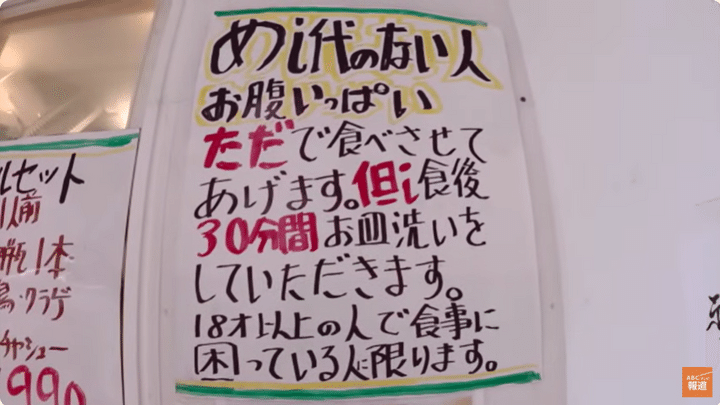 めし代のない人
お腹いっぱい
ただで食べさせて
あげます。但し食後
30分間お皿洗いを
していただきます。
18才以上の人で食事に
困っている人に限ります。
ルセット
1人前
瓶1本
クラゲ
チャーシュー
1990
ABCテレビ
報道